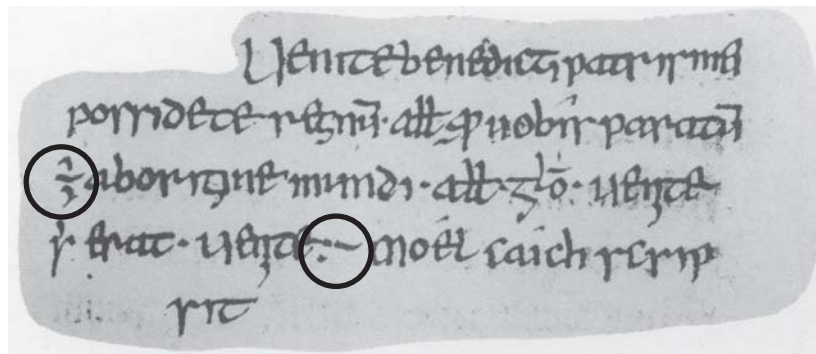 Uenite benedicti patris mei
possidete regnū · aƚƚ · ꝙ uobis paratū
÷ ab origine mundi · aƚƚ · gƚō · uenite
ẜ erat · uenite :~ móel caich scrip
sit